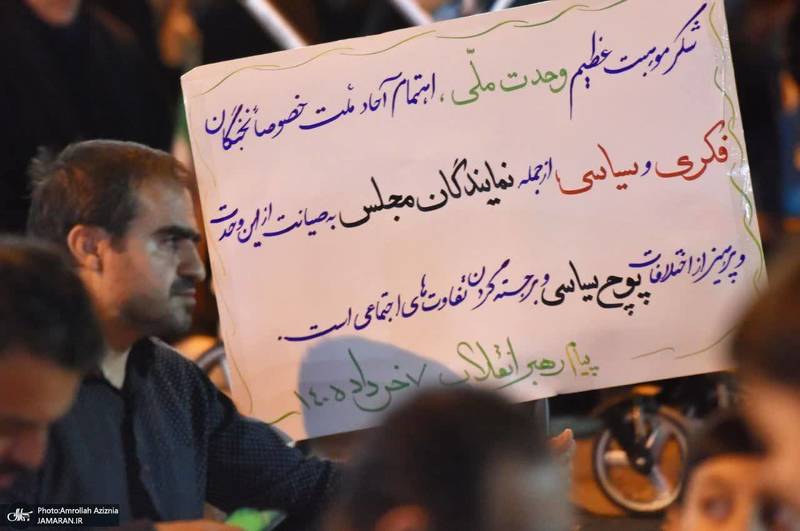 شکر موهبت عظیم وحدت ملّی، اهتمام آحاد ملت خصوصا نخبگان
فکری و سیاسی از جمله نمایندگان مجلس به صیانت از این وحدت
و پرهیز از اختلافات پوچ سیاسی و برجسته کردن تفاوت های اجتماعی است.
پیام رهبر انقلاب ۷ خرداد ۱۴۰۵
Photo:Amrollah Aziznia
JAMARAN.IR